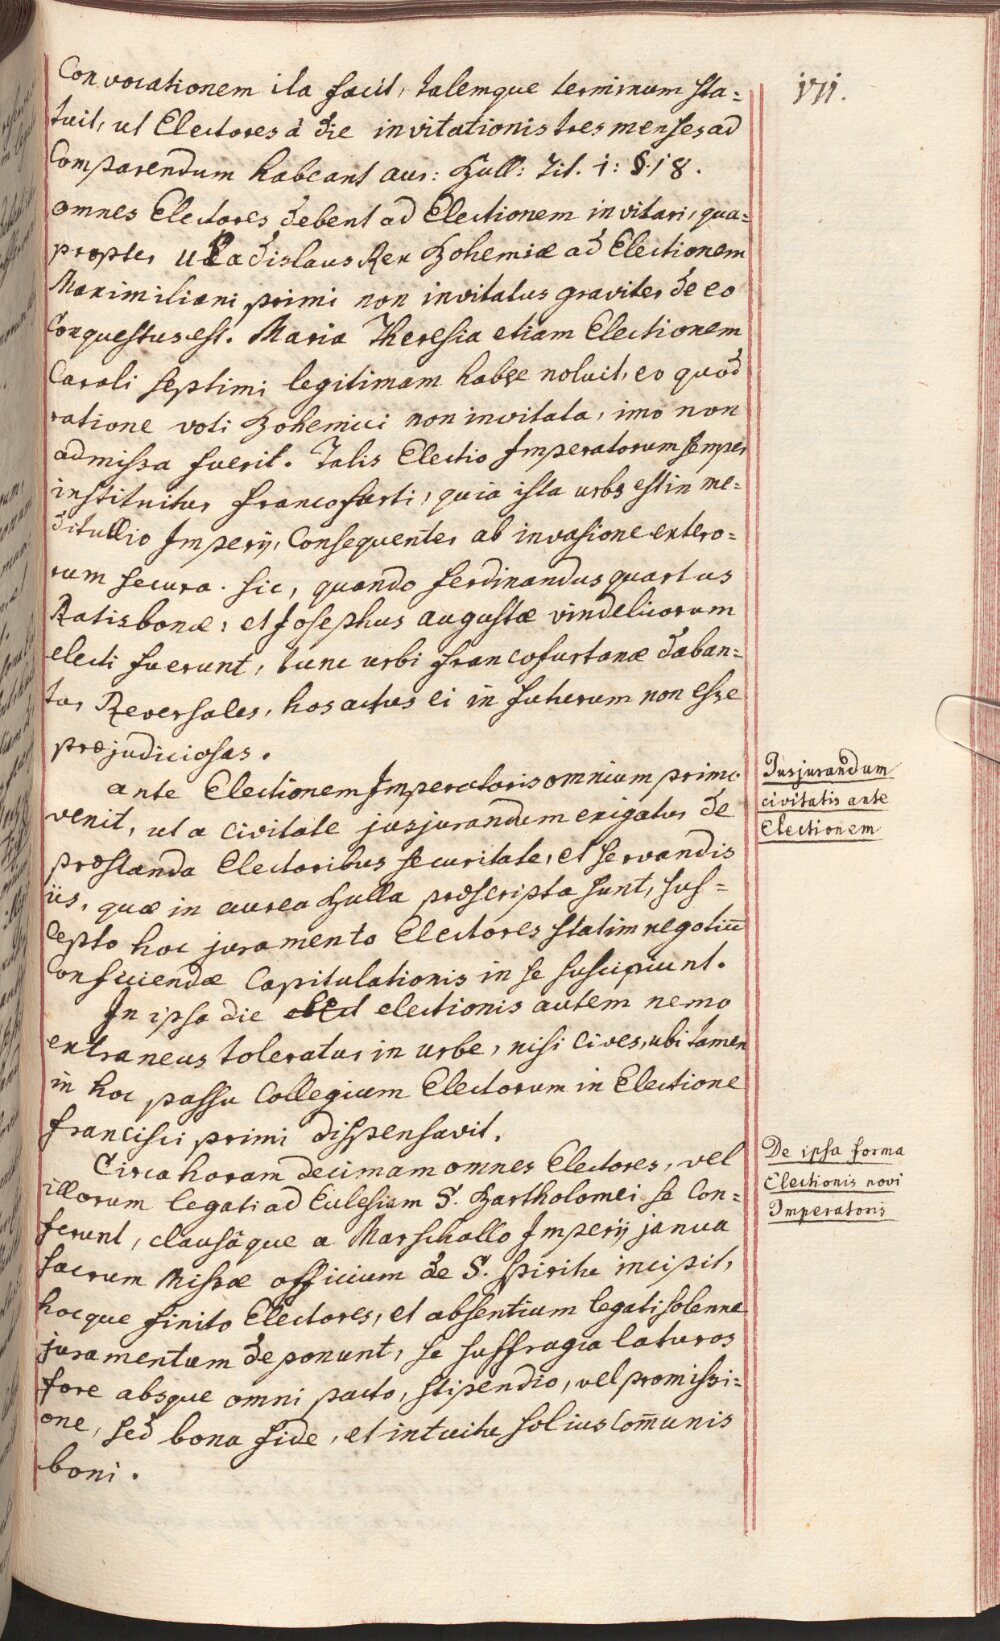 171.
Convocationem ita facit, talemque terminum sta=
tuit, ut Electores à die invitationis tres menses ad
Comparendum habeant aur: Bull: Tit. 1: §. 18.
omnes Electores debent ad Electionem invitari, qua=
propter Uladislaus Rex Bohemiæ ad Electionem
Maximiliani primi non invitatus graviter de eo
Conquestus est. Maria Theresia etiam Electionem
Caroli septimi legitimam habere noluit, eo quod
ratione voti Bohemici non invitata, imo non
admissa fuerit. Talis Electio Imperatorum semper
instituitur Francofurti, quia ista urbs est in me=
ditullio Imperij, Consequenter ab invasione extero=
rum secura. sic, quando Ferdinandus quartus
Ratisbonæ, et Josephus augustæ vindelicorum
electi fuerunt, tunc urbi Francofurtanæ daban=
tur Reversales, hos actus ei in futurum non esse
præjudiciosas.
ante Electionem Imperatoris omnium primo
venit, ut a civitate jusjurandum exigatur de
præstanda Electoribus securitate, et servandis
iis, quæ in aurea Bulla præscripta sunt, sus=
cepto hoc juramento Electores statim negotiū
Conficiendæ Capitulationis in se suscipiunt.
In ipsa die electionis autem nemo
extraneus toleratur in urbe, nisi Cives, ubi tamen
in hoc passu Collegium Electorum in Electione
Francisci primi dispensavit.
Circa horam decimam omnes Electores, vel
illorum legati ad Eclesiam S. Bartholomei se Con=
ferunt, clausâque a Marschallo Imperij janua
sacrum Missæ officium de S. Spiritu incipit,
hocque finito Electores, et absentium legati solenne
juramentum deponunt, se suffragia laturos
fore absque omni pacto, stipendio, vel promissi=
one, sed bona fide, et intuitu solius Com̄unis
boni.
Jusjurandum
civitatis ante
Electionem
De ipsa forma
Electionis novi
Imperatoris